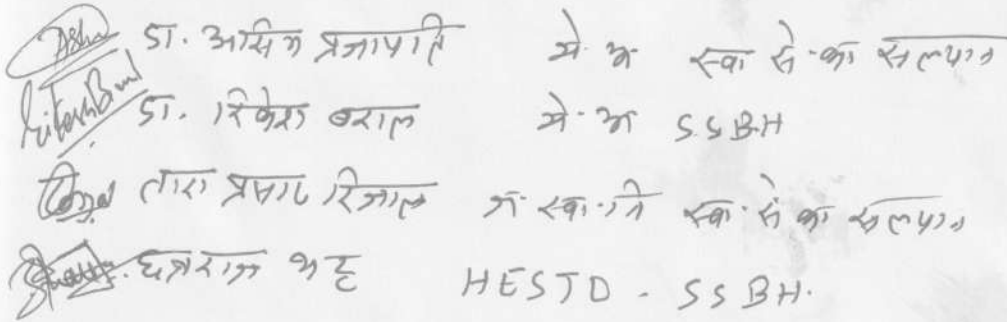 डा. आसिम प्रजापति मे.अ स्वा से.का सल्यान
डा. रितेश बराल मे.अ S.S.B.H
तारा प्रसाद रिजाल ज.स्वा.नि स्वा.से.का सल्यान
छत्रराज भट्ट HESTD - SSBH.